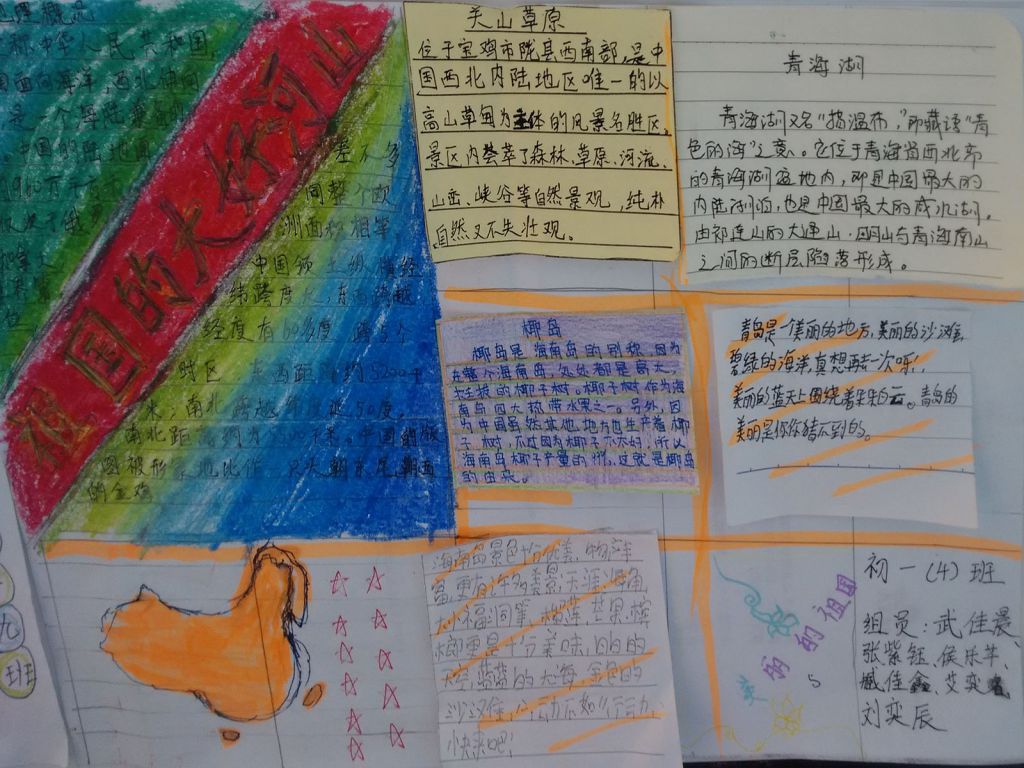 祖国的大好河山
地理概况
称中华人民共和国,
面向海洋,西北伸向
是一个海陆兼备的
。中国的陆地面 差不多
960万平方千 同整个欧
仅次于俄 洲面积相等,
中国领土 横经
纬跨度大,东西跨越
经度有60多度 跨5个
时区 东西距离约5200千
米;南北跨越纬度近50度,
南北距离约为5500千米。中国的版
图被形象地比作一只头朝东尾朝西
的金鸡
关山草原
位于宝鸡市陇县西南部,是中
国西北内陆地区唯一的以
高山草甸为主体的风景名胜区,
景区内荟萃了森林、草原、河流、
山峦、峡谷等自然景观,纯朴
自然又不失壮观。
青海湖
青海湖又名“措温布,”即藏语“青
色的海”之意。它位于青海省西北部
的青海湖盆地内,即是中国最大的
内陆湖泊,也是中国最大的咸水湖。
由祁连山的大通山、日月山与青海南山
之间的断层陷落形成。
椰岛
椰岛是海南岛的别称,因为
在整个海南岛,处处都是高大
茁壮的椰子树。椰子树作为海
南岛四大热带水果之一。另外,因
为中国虽然其他地方也生产着椰子
树,不过因为椰子不太好,所以
海南岛椰子产量的 ,这就是椰岛
的由来。
青岛是一美丽的地方,美丽的沙滩,
碧绿的海洋,真想再去一次呀!
美丽的蓝天上围绕着朵朵白云。青岛的
美丽是你你猜不到的。
海南岛景色 优美,物产丰
富,更有许多美景:天涯海角,
椰更是十方美味,白白的
天空,蓝蓝的大海,金色的
沙滩 ,心动不如行动,
快来吧!
美丽的祖国
初一(4)班
组员:武佳晨、
张紫钰、侯乐芊、
臧佳鑫、艾奕
刘奕辰
九
班